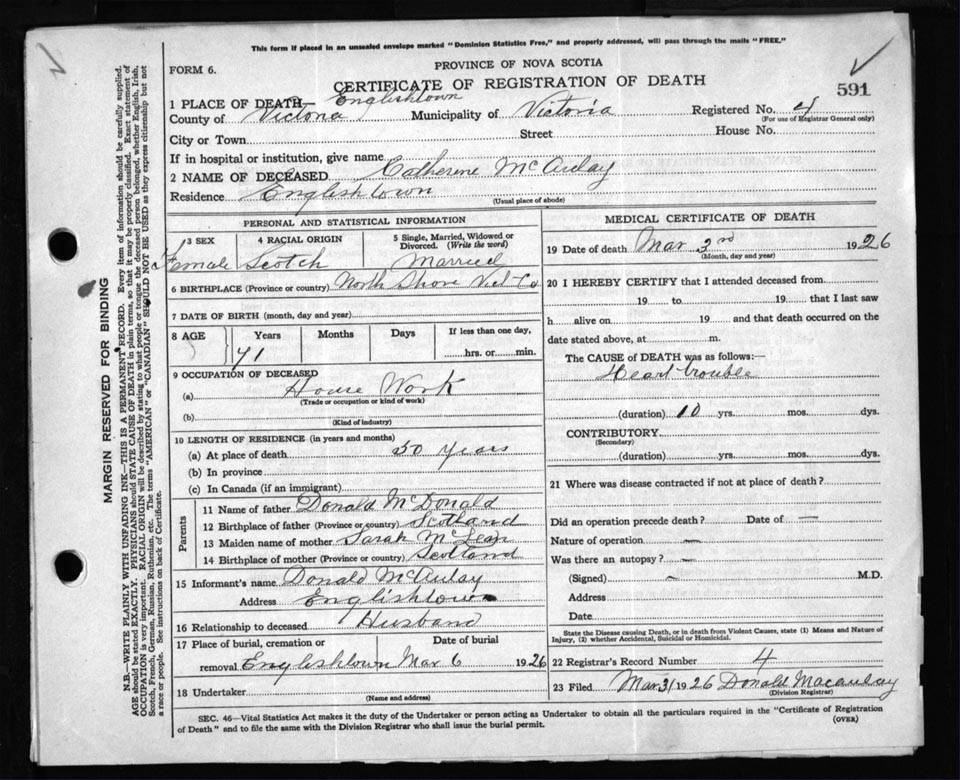 This form if placed in an unsealed envelope marked "Dominion Statistics Free," and properly addressed, will pass through the mails "FREE."
PROVINCE OF NOVA SCOTIA
FORM 6.
CERTIFICATE OF REGISTRATION OF DEATH
591
1 PLACE OF DEATH— Englishtown
County of Victoria Municipality of Victoria Registered No. 4
(For use of Registrar General only)
City or Town Street House No.
If in hospital or institution, give name
2 NAME OF DECEASED Catherine McAulay
Residence Englishtown
(Usual place of abode)
PERSONAL AND STATISTICAL INFORMATION
3 SEX 4 RACIAL ORIGIN 5 Single, Married, Widowed or Divorced. (Write the word)
Female Scotch Married
6 BIRTHPLACE (Province or country) North Shore Vict Co
7 DATE OF BIRTH (month, day and year)
8 AGE Years Months Days If less than one day,
71 hrs. or min.
9 OCCUPATION OF DECEASED
(a) House Work
(Trade or occupation or kind of work)
(b)
(Kind of industry)
10 LENGTH OF RESIDENCE (in years and months)
(a) At place of death 50 years
(b) In province
(c) In Canada (if an immigrant)
Parents
11 Name of father Donald McDonald
12 Birthplace of father (Province or country) Scotland
13 Maiden name of mother Sarah McLean
14 Birthplace of mother (Province or country) Scotland
15 Informant's name Donald McAulay
Address Englishtown
16 Relationship to deceased Husband
17 Place of burial, cremation or Date of burial
removal Englishtown Mar 6 1926
18 Undertaker
(Name and address)
MEDICAL CERTIFICATE OF DEATH
19 Date of death Mar 3rd 1926
(Month, day and year)
20 I HEREBY CERTIFY that I attended deceased from
19 to 19 that I last saw
h alive on 19 and that death occurred on the
date stated above, at m.
The CAUSE of DEATH was as follows:—
Heart trouble
(duration) 10 yrs. mos. dys.
CONTRIBUTORY
(Secondary)
(duration) yrs. mos. dys.
21 Where was disease contracted if not at place of death?
Did an operation precede death? Date of —
Nature of operation —
Was there an autopsy? —
(Signed) — M.D.
Address
Date
State the Disease causing Death, or in death from Violent Causes, state (1) Means and Nature of
Injury, (2) whether Accidental, Suicidal or Homicidal.
22 Registrar's Record Number 4
23 Filed Mar 31 1926 Donald Macaulay
(Division Registrar)
SEC. 46—Vital Statistics Act makes it the duty of the Undertaker or person acting as Undertaker to obtain all the particulars required in the "Certificate of Registration
of Death" and to file the same with the Division Registrar who shall issue the burial permit.
(OVER)
MARGIN RESERVED FOR BINDING
N.B.—WRITE PLAINLY WITH UNFADING INK—THIS IS A PERMANENT RECORD. Every item of information should be carefully supplied.
AGE should be stated EXACTLY. PHYSICIANS should STATE CAUSE OF DEATH in plain terms, so that it may be properly classified. Exact statement of
OCCUPATION is very important. RACIAL ORIGIN will be described by stating to what people or tongue the deceased person belonged, whether English, Irish,
Scotch, French, German, Russian, Ruthenian, etc. The terms "AMERICAN" or "CANADIAN" SHOULD NOT BE USED as they express citizenship but not
a race or people. See instructions on back of Certificate.